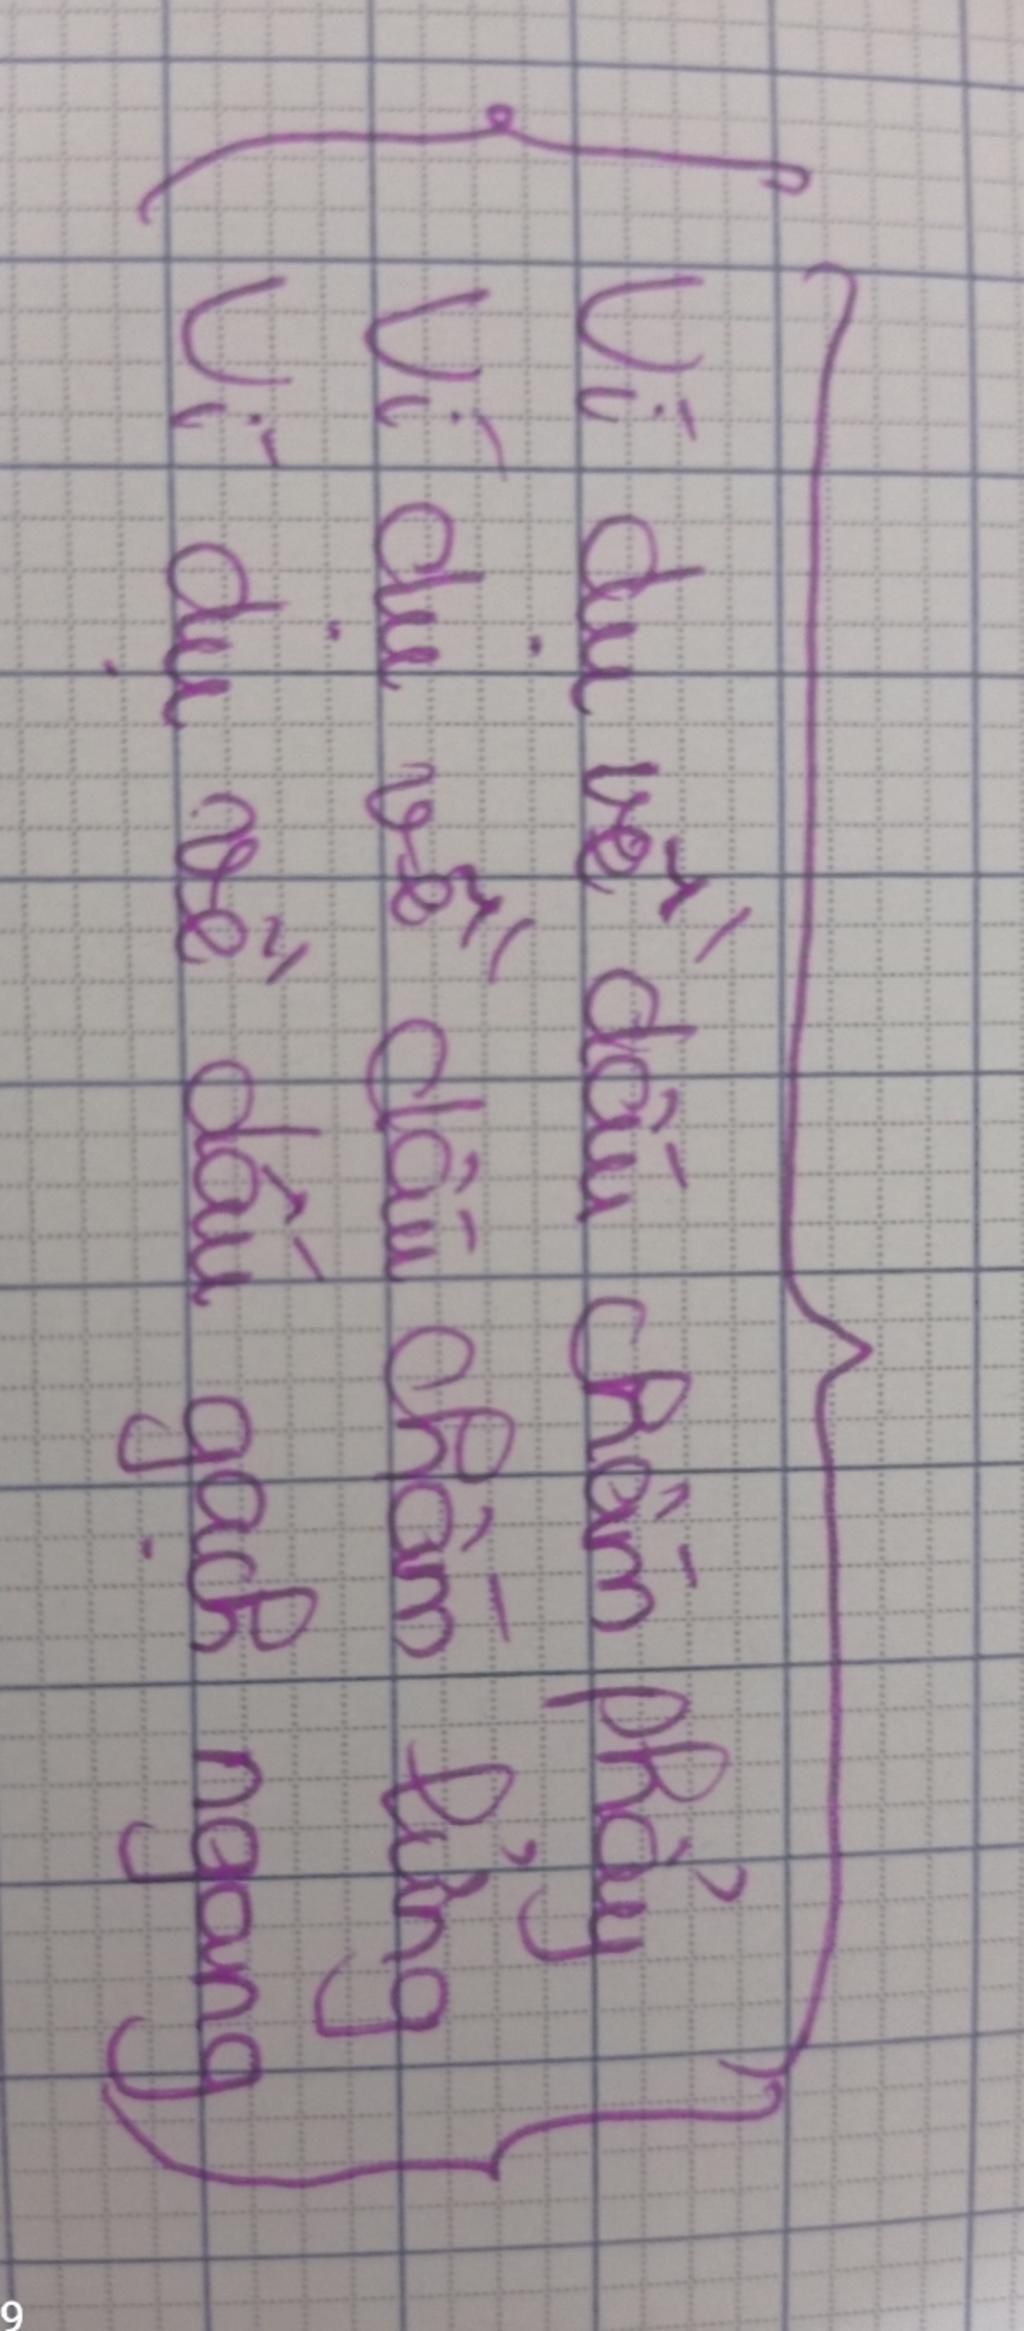 Ví dụ về dấu chấm phẩy
Ví dụ về dấu chấm lửng
Ví dụ về dấu gạch ngang
9